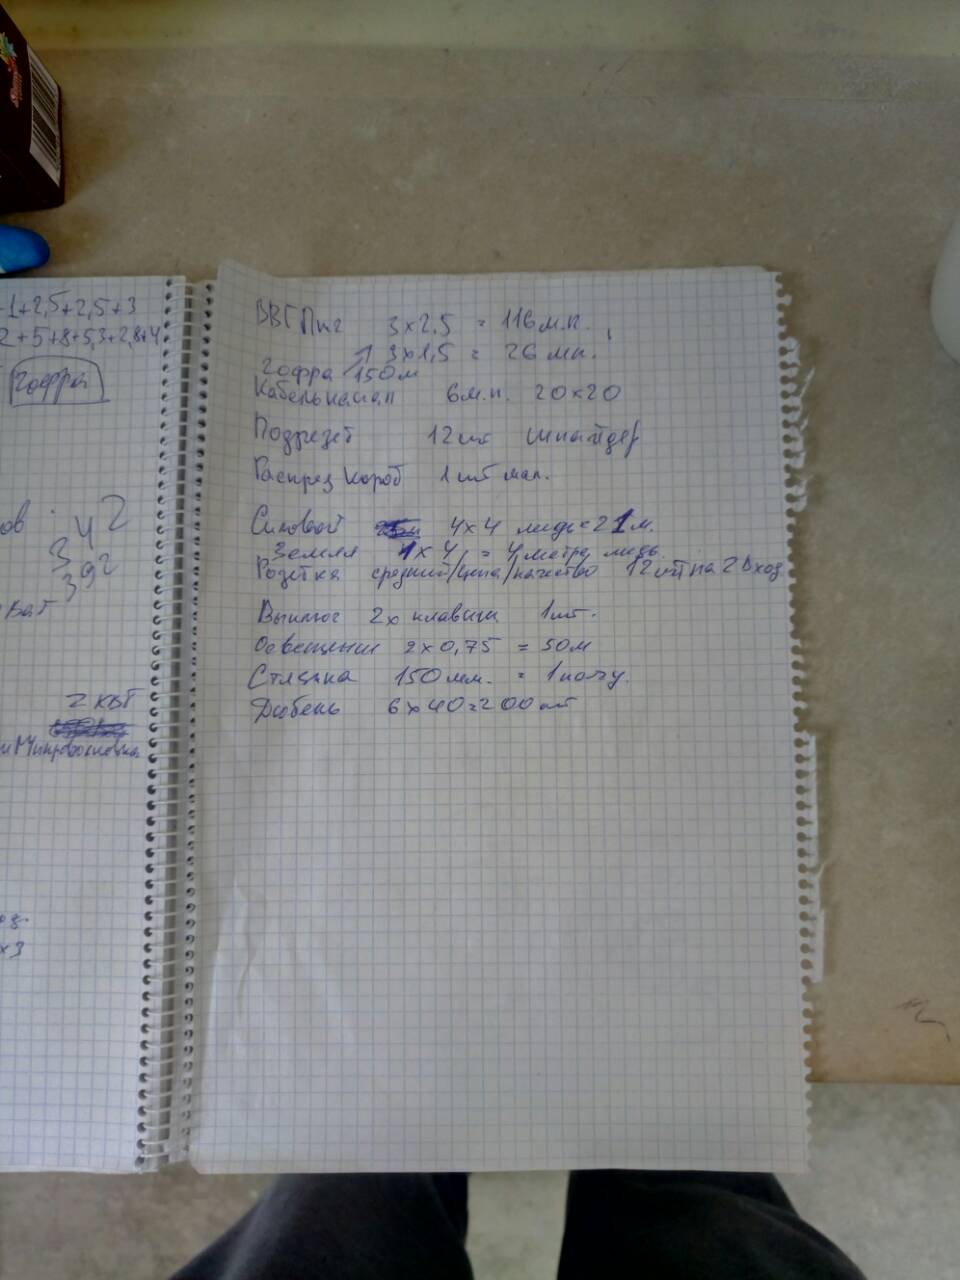 -1+2,5+2,5+3
2+5+8+5,3+2,8+4
гофра
ов
3 4 2
3 9 2
2 квт
и Микроволновка
х3
ВВГПнг 3х2,5 = 116 м.п.
3х1,5 = 26 мп.
Гофра 150м
Кабельканал 6м.п. 20х20
Подрозет 12шт шнайдер
Распред короб 1шт мал.
Силовой 4х4 медь = 21м.
Земля 1х4 = 4 метра медь
Розетка средний/цена/качество 12шт на 2 Вход
Выключ 2х клавиш 1шт.
Освещение 2х0,75 = 50м
Стяжка 150мм. = 1 пачку.
Дюбель 6х40=200шт